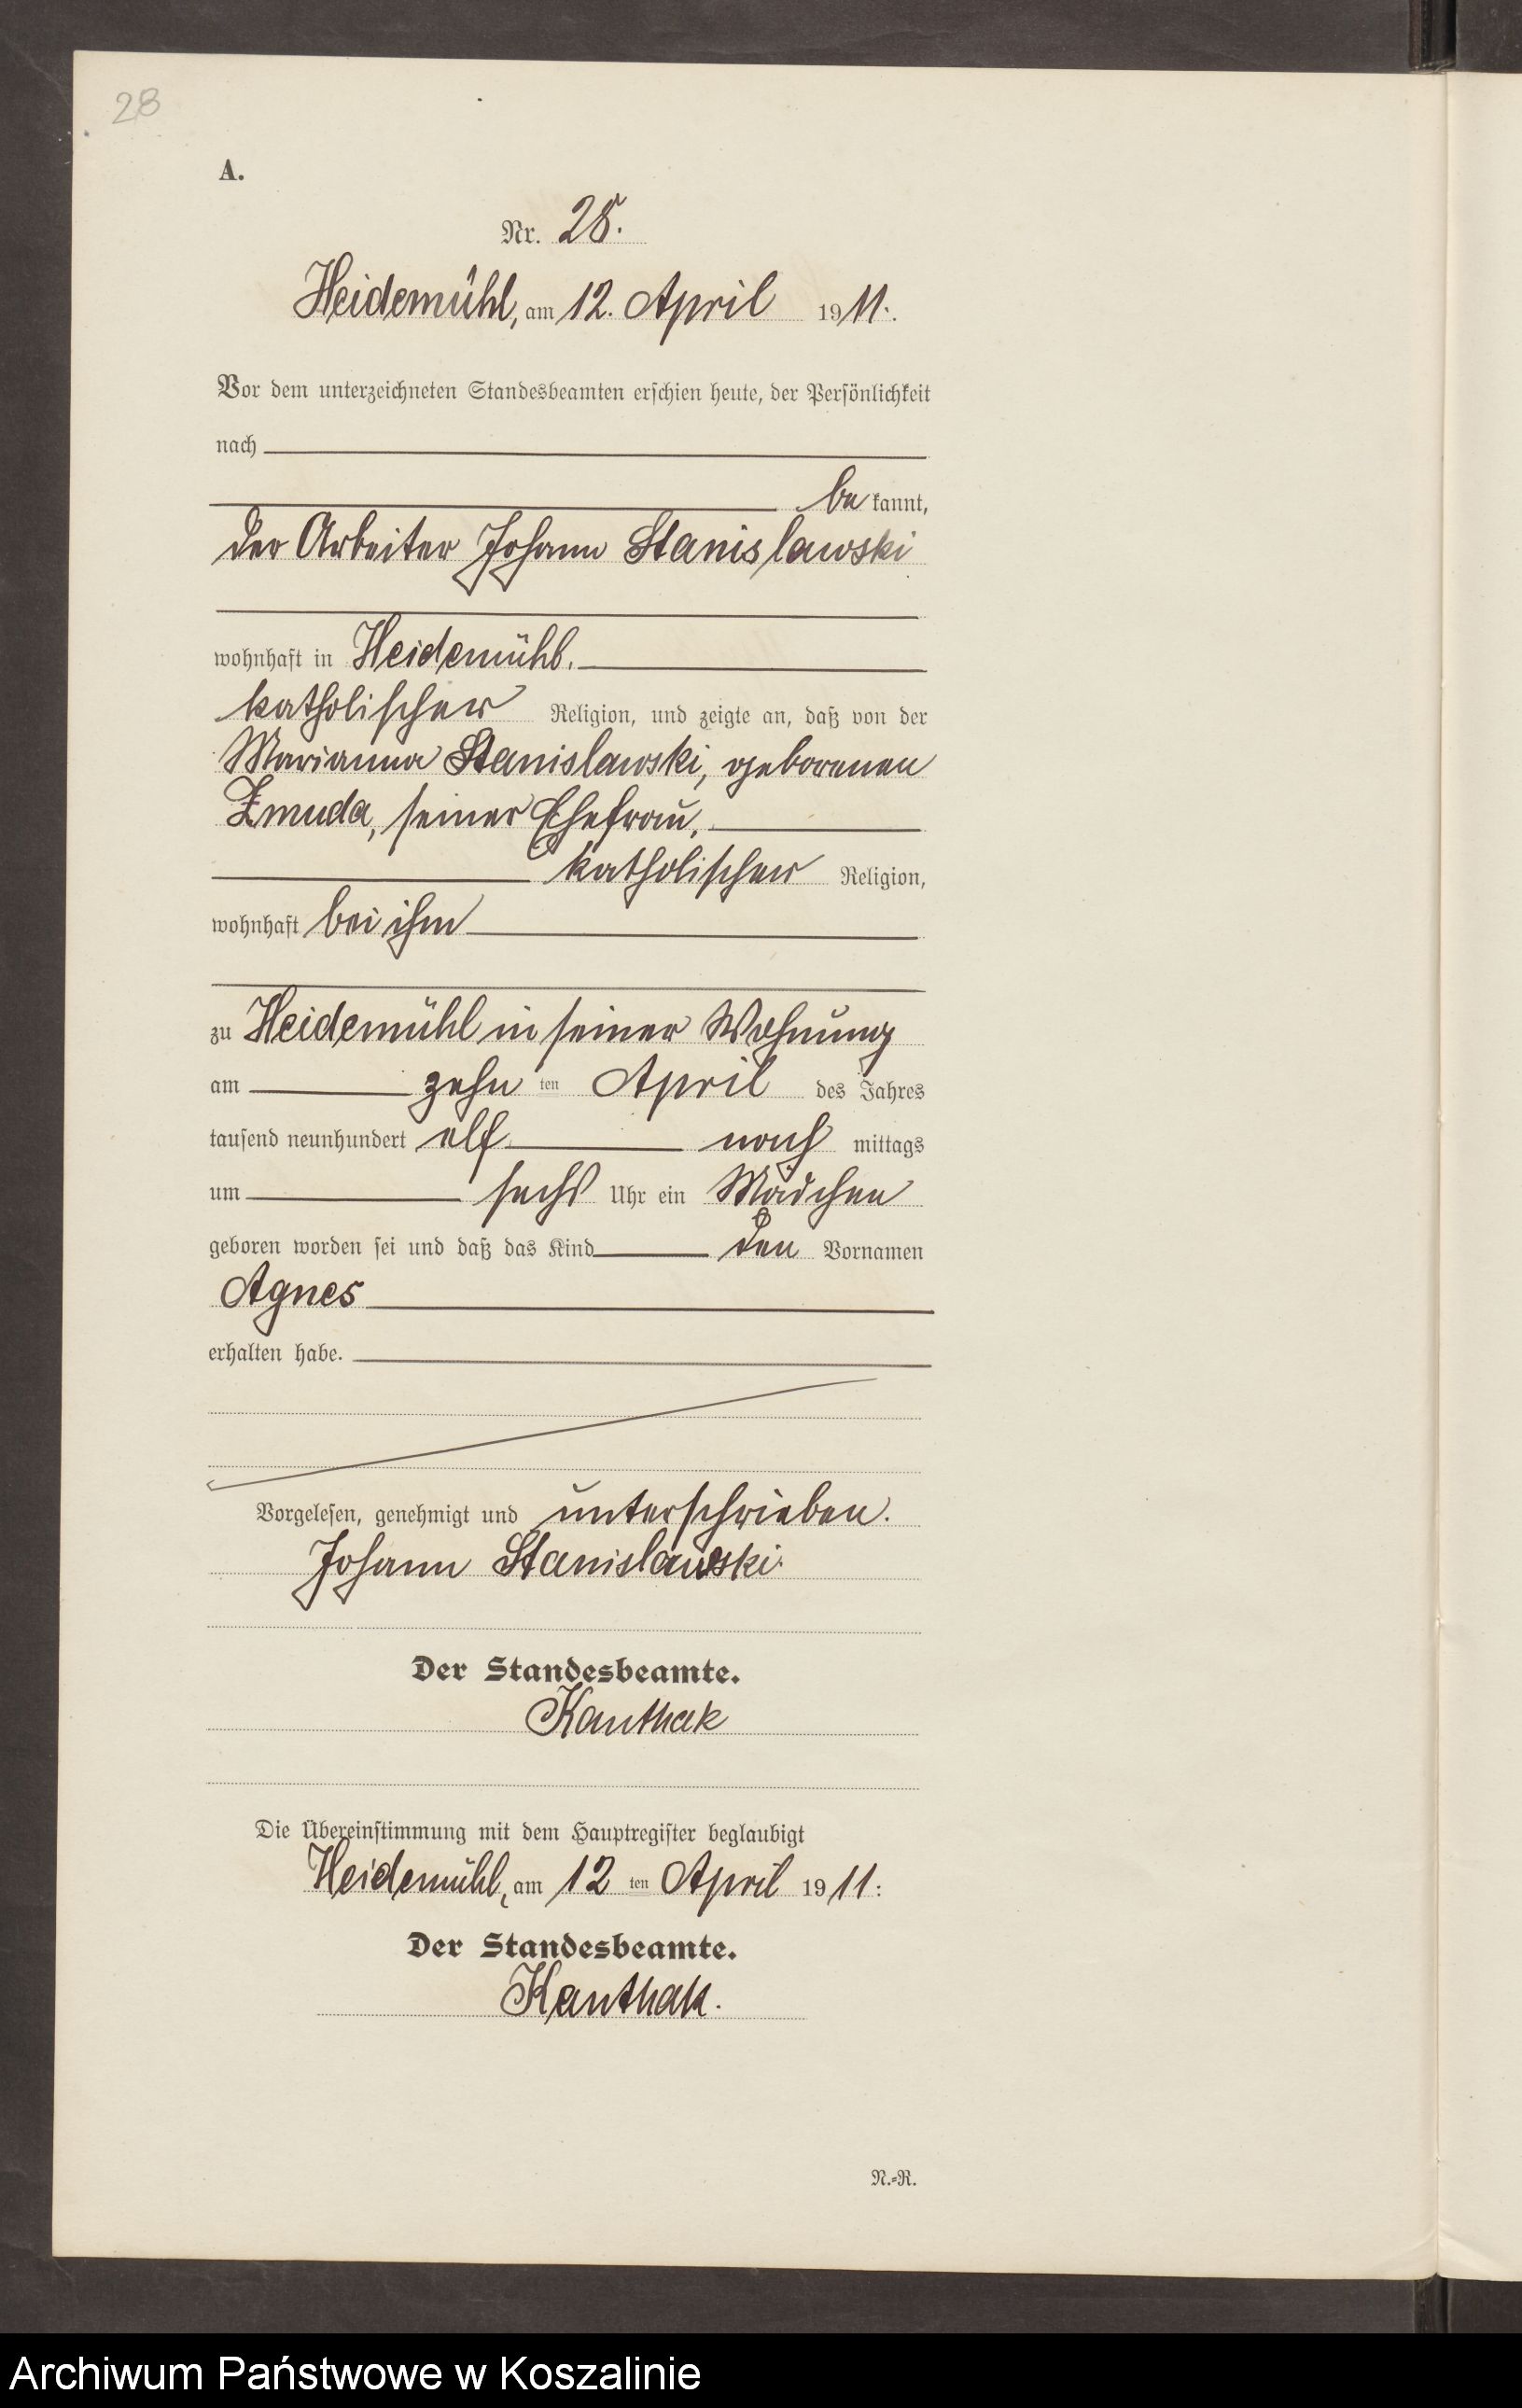 28
A.
Nr. 28.
Heidemühl, am 12. April 1911.
Vor dem unterzeichneten Standesbeamten erschien heute, der Persönlichkeit
nach
bekannt,
der Arbeiter Johann Stanislawski
wohnhaft in Heidemühl.
katholischer Religion, und zeigte an, daß von der
Marianna Stanislawski, geborenen
Zmuda, seiner Ehefrau,
katholischer Religion,
wohnhaft bei ihm
zu Heidemühl in seiner Wohnung
am zehn ten April des Jahres
tausend neunhundert elf nach mittags
um sechs Uhr ein Mädchen
geboren worden sei und daß das Kind den Vornamen
Agnes
erhalten habe.
Vorgelesen, genehmigt und unterschrieben.
Johann Stanislawski.
Der Standesbeamte.
Kanthak
Die Übereinstimmung mit dem Hauptregister beglaubigt
Heidemühl, am 12 ten April 1911.
Der Standesbeamte.
Kanthak.
N.=R.
Archiwum Państwowe w Koszalinie